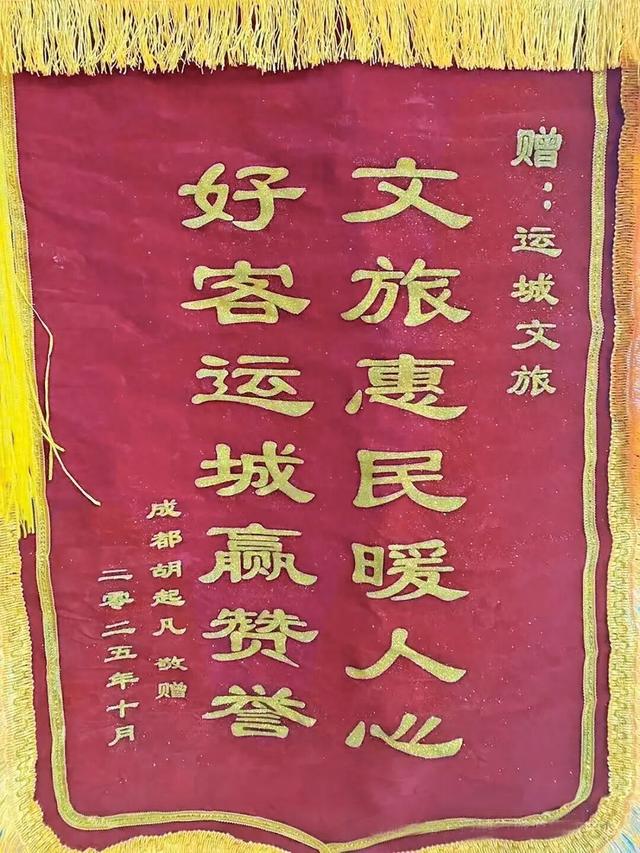 赠：运城文旅
文旅惠民暖人心
好客运城赢赞誉
成都胡起凡 敬赠
二零二五年十月